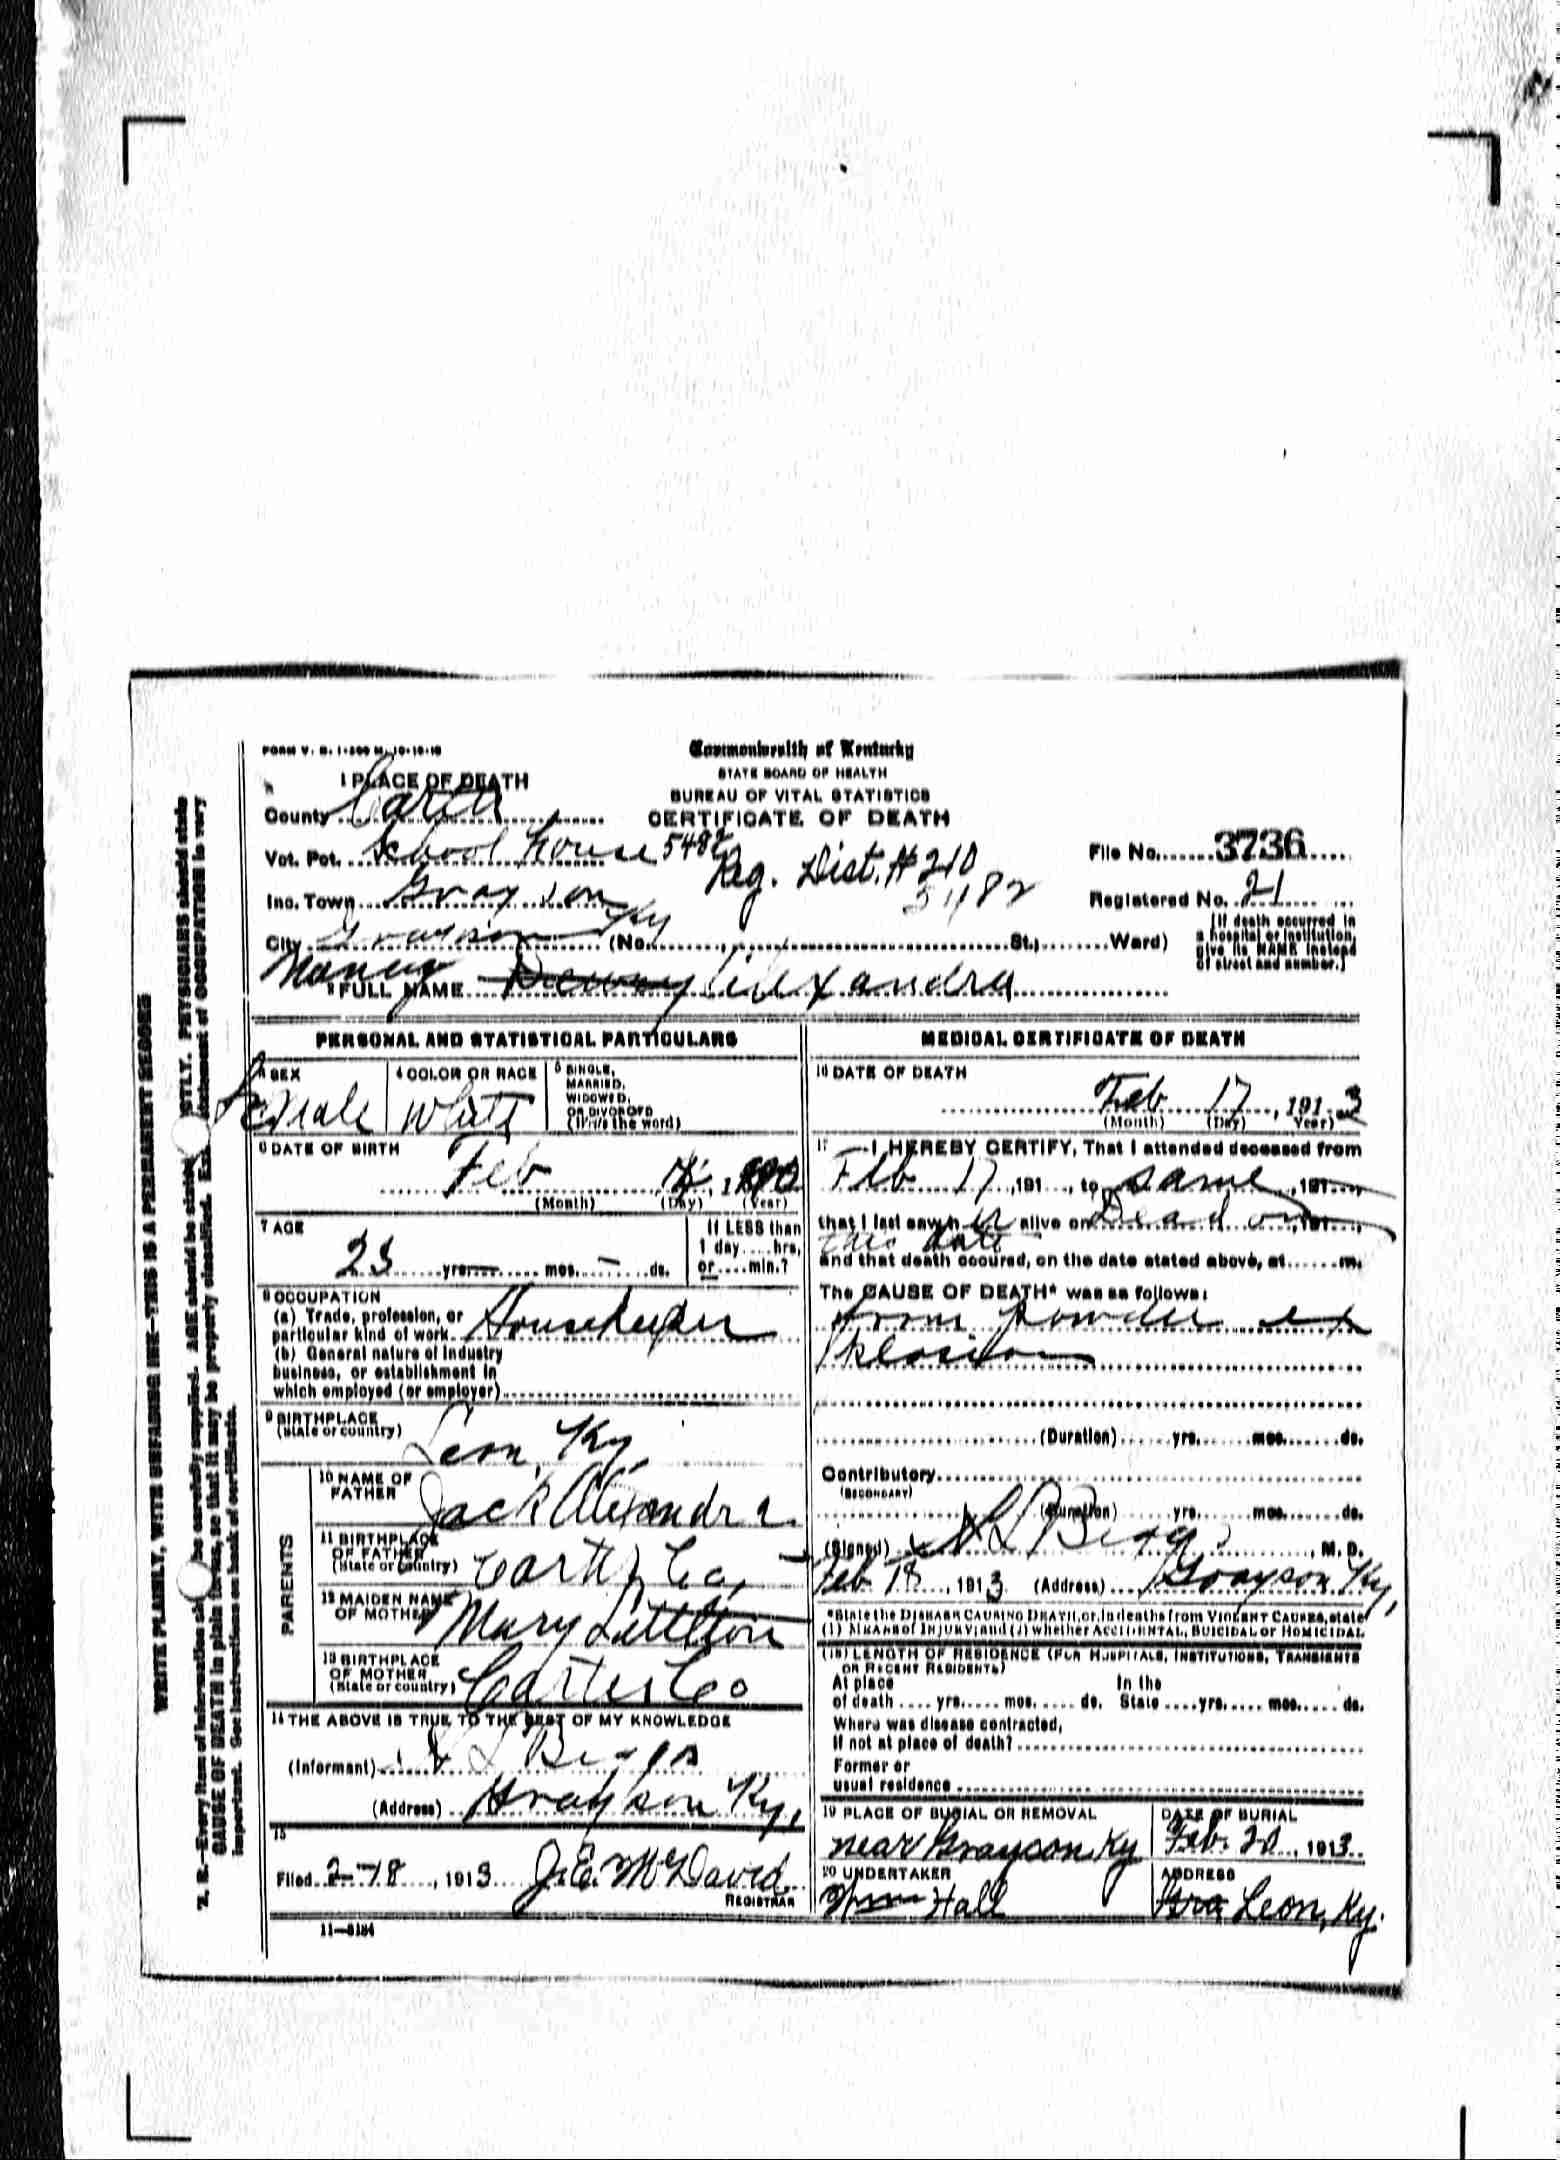 FORM V. S. 1-300 M. 10-10-10
Commonwealth of Kentucky
STATE BOARD OF HEALTH
BUREAU OF VITAL STATISTICS
CERTIFICATE OF DEATH
1 PLACE OF DEATH
County Carter
Vot. Pct. School House 5482
Reg. Dist. # 210
5482
File No. 3736
Inc. Town Grayson
Registered No. 21
City Grayson Ky (No. , St., Ward)
[If death occurred in
a hospital or institution,
give its NAME instead
of street and number.]
2 FULL NAME Nancy Alexandra
PERSONAL AND STATISTICAL PARTICULARS
3 SEX
Female
4 COLOR OR RACE
White
5 SINGLE,
MARRIED,
WIDOWED,
OR DIVORCED
(Write the word)
6 DATE OF BIRTH
Feb
(Month) (Day) (Year)
7 AGE
23 yrs. — mos. — ds.
If LESS than
1 day .... hrs.
or .... min.?
8 OCCUPATION
(a) Trade, profession, or
particular kind of work Housekeeper
(b) General nature of industry
business, or establishment in
which employed (or employer)
9 BIRTHPLACE
(State or country)
Leon, Ky
PARENTS
10 NAME OF
FATHER
Jack Alexandra
11 BIRTHPLACE
OF FATHER
(State or country)
Carter Co,
12 MAIDEN NAME
OF MOTHER
Mary Littleton
13 BIRTHPLACE
OF MOTHER
(State or country)
Carter Co
14 THE ABOVE IS TRUE TO THE BEST OF MY KNOWLEDGE
(Informant) L Biggs
(Address) Grayson Ky,
15
Filed 2-18, 1913 J.E. McDavid
REGISTRAR
11—3184
MEDICAL CERTIFICATE OF DEATH
16 DATE OF DEATH
Feb 17, 1913
(Month) (Day) (Year)
17 I HEREBY CERTIFY, That I attended deceased from
Feb 17, 191 , to same, 191 ,
that I last saw h er alive on Dead on, 191 ,
this date
and that death occured, on the date stated above, at ...... m.
The CAUSE OF DEATH* was as follows:
from powder ex
plosion
(Duration) yrs. mos. ds.
Contributory
(SECONDARY)
(Duration) yrs. mos. ds.
(Signed) L Biggs, M. D.
Feb 18, 1913 (Address) Grayson Ky,
*State the DISEASE CAUSING DEATH, or, in deaths from VIOLENT CAUSES, state
(1) MEANS of INJURY; and (2) whether ACCIDENTAL, SUICIDAL or HOMICIDAL
(18) LENGTH OF RESIDENCE (FOR HOSPITALS, INSTITUTIONS, TRANSIENTS
OR RECENT RESIDENTS)
At place In the
of death .... yrs. .... mos. .... ds. State .... yrs. .... mos. .... ds.
Where was disease contracted,
If not at place of death?
Former or
usual residence
19 PLACE OF BURIAL OR REMOVAL
near Grayson, Ky
DATE OF BURIAL
Feb. 20, 1913.
20 UNDERTAKER
Hall
ADDRESS
Leon, Ky.
WRITE PLAINLY, WITH UNFADING INK—THIS IS A PERMANENT RECORD
N. B.—Every item of information should be carefully supplied. AGE should be stated EXACTLY. PHYSICIANS should state
CAUSE OF DEATH in plain terms, so that it may be properly classified. Exact statement of OCCUPATION is very
important. See instructions on back of certificate.